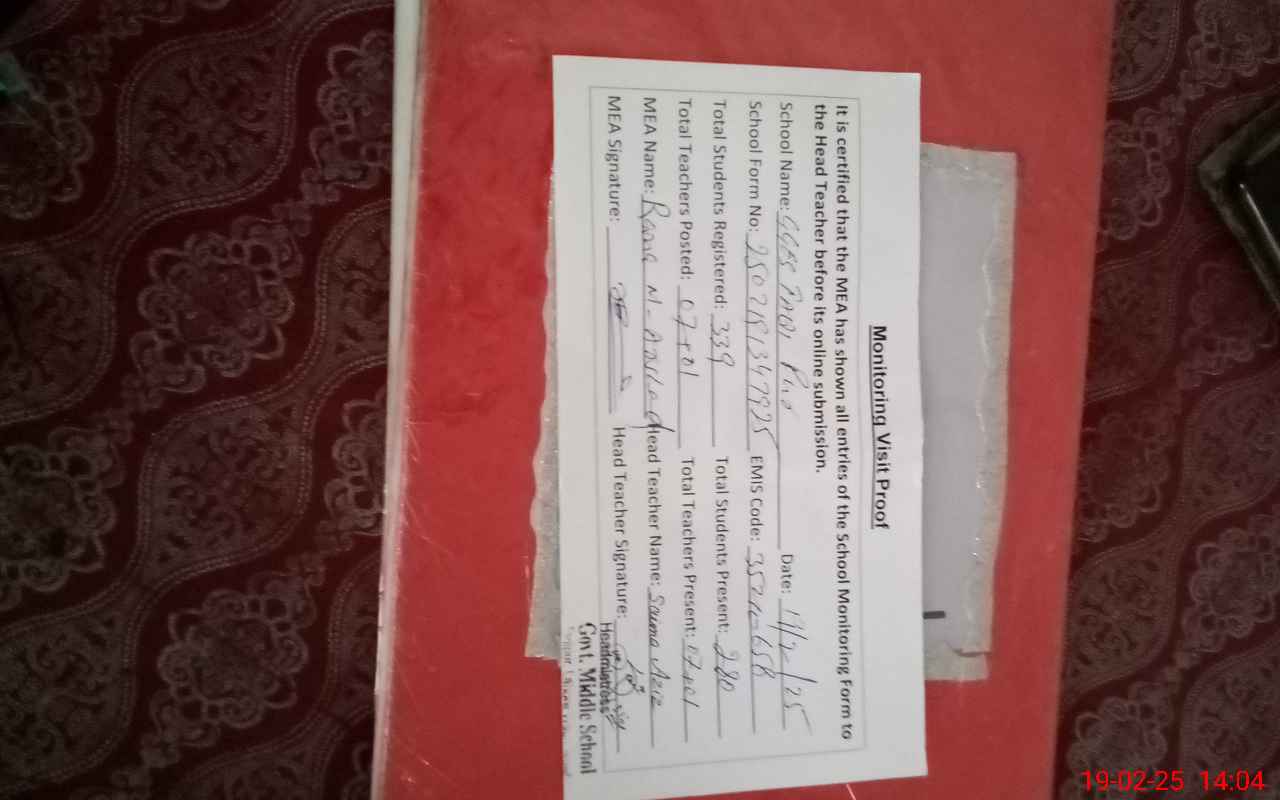 Monitoring Visit Proof
It is certified that the MEA has shown all entries of the School Monitoring Form to
the Head Teacher before its online submission.
School Name: Date: 19/2/25
School Form No: EMIS Code:
Total Students Registered: 339 Total Students Present: 280
Total Teachers Posted: 07+01 Total Teachers Present: 07+01
MEA Name: Rana M. Arshad Head Teacher Name: Saima Aziz
MEA Signature: Head Teacher Signature:
Headmistress
Govt. Middle School
19-02-25 14:04